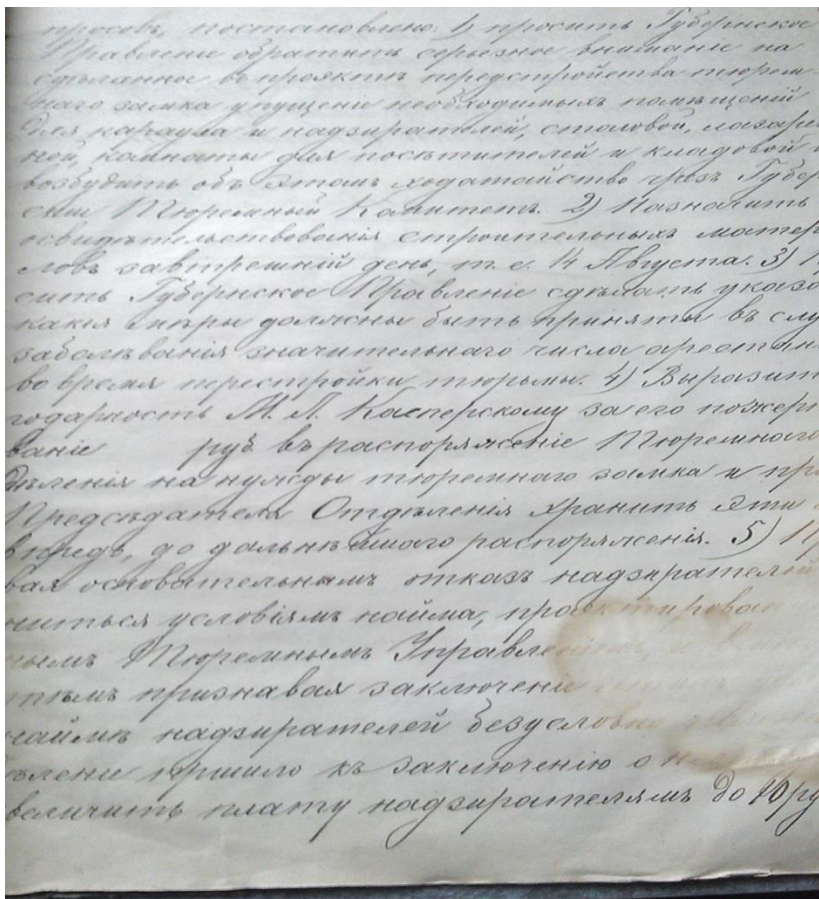 просовъ, постановлено: 1) просить Губернское
Правленіе обратить серьезное вниманіе на
сдѣланное въ проэктѣ переустройства тюрем
наго замка упущеніе необходимыхъ помѣщеній
для караула и надзирателей, столовой, лазарет
ной, комнаты для посѣтителей и кладовой и
возбудить объ этомъ ходатайство чрезъ Губерн
скій Тюремный Комитетъ. 2) Назначить
освидѣтельствованія строительныхъ матеріа
ловъ завтрешній день, т. е. 14 Августа. 3)
сить Губернское Правленіе сдѣлать указа
какія мѣры должны быть приняты въ слу
заболѣванія значительнаго числа арестан
во время перестройки тюрьмы. 4) Выразить
годарность М. Л. Касперскому за его пожерт
ваніе руб. въ распоряженіе Тюремнаго
дѣленія на нужды тюремнаго замка и пр
Предсѣдателя Отдѣленія хранить эти
впредь, до дальнѣйшаго распоряженія. 5)
вая основательнымъ отказъ надзирателей
читься условіямъ найма, проэктирован
нымъ Тюремнымъ Управленіемъ, и
тѣмъ признавая заключеніе
наймѣ надзирателей безусловно
ѣленіе пришло къ заключенію о
величить плату надзирателямъ до 10 ру